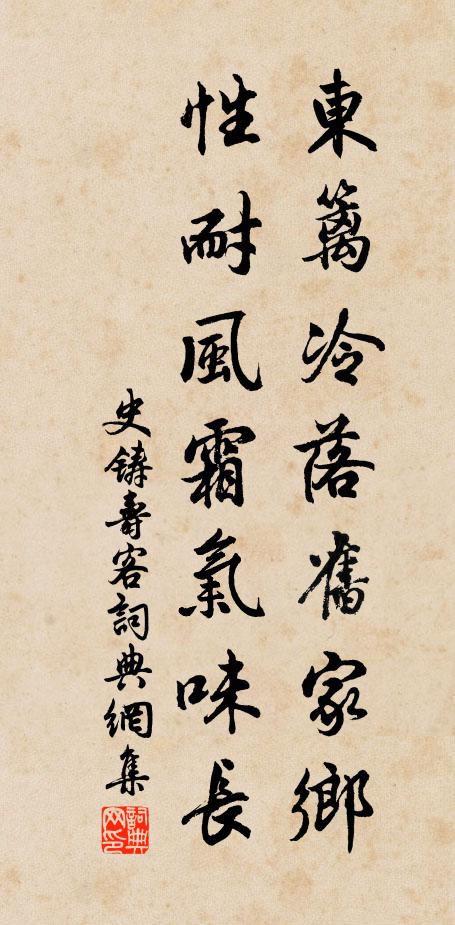 東籬冷落舊家鄉
性耐風霜氣味長
史鑄壽客詞典網集
詞典網印